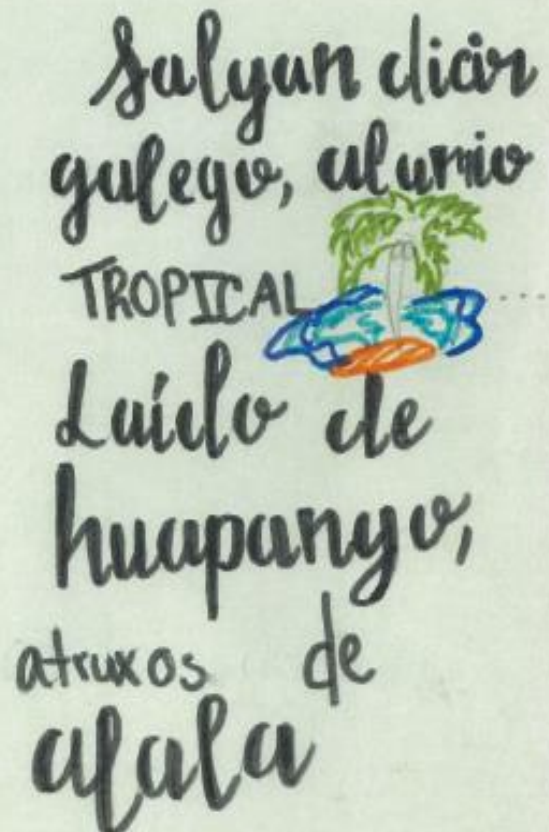 Salgan dicir
galego, alurio
TROPICAL ....
Laído de
huapango,
atruxos de
alala